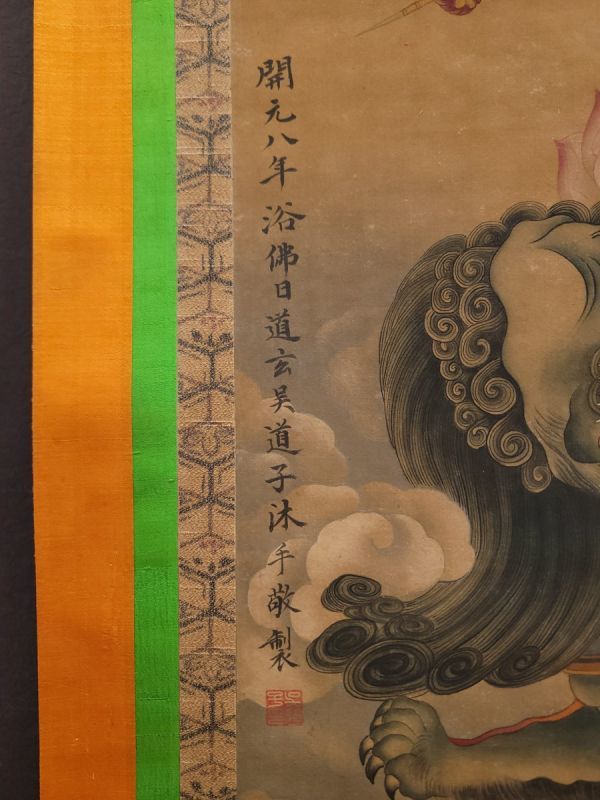 開元八年浴佛日道玄吳道子沐手敬製